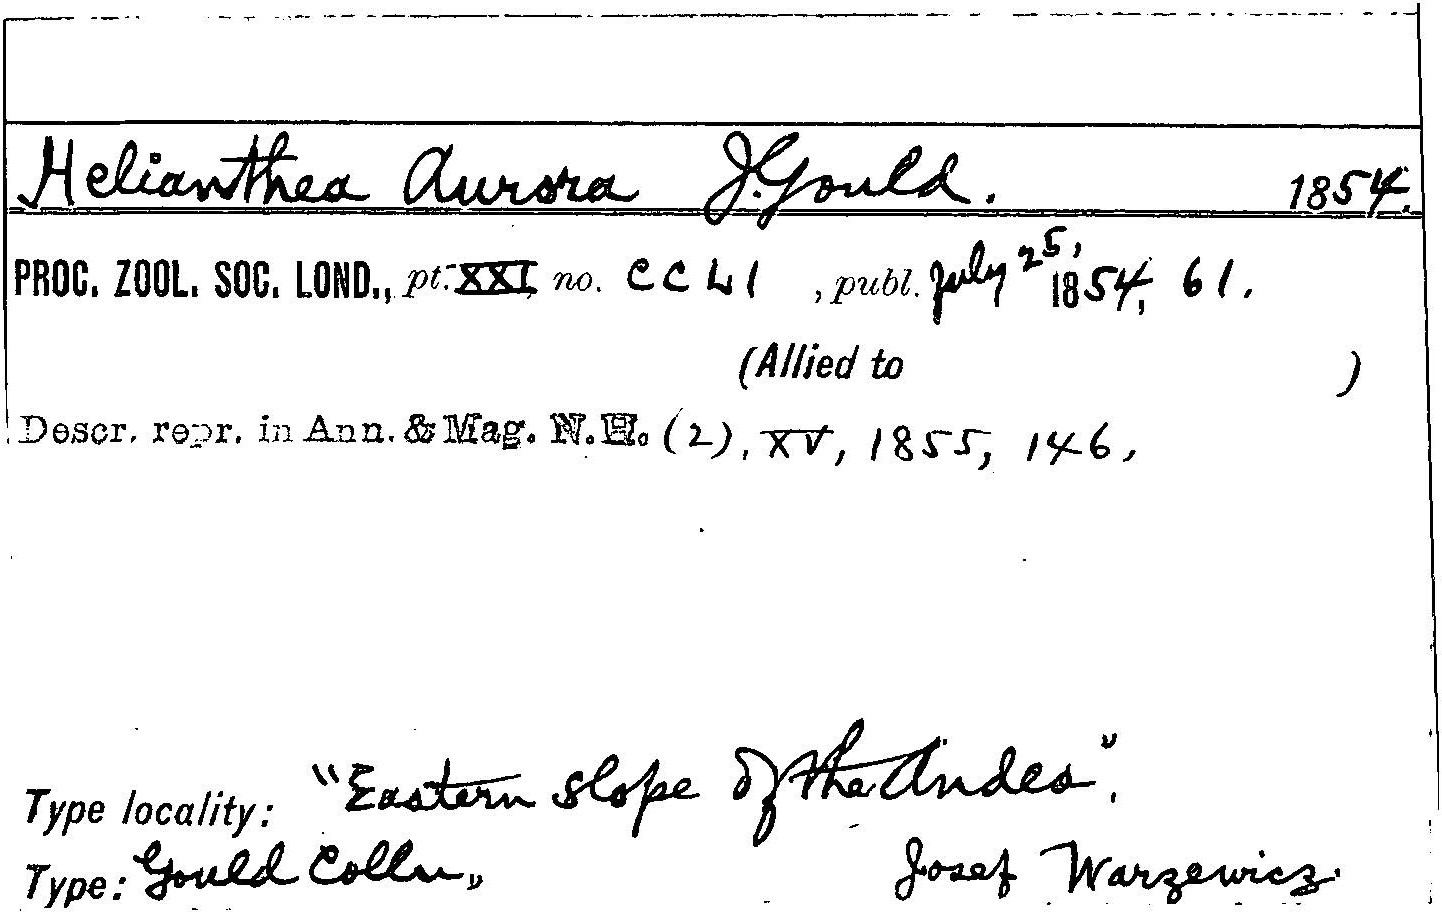 Helianthea Aurora J. Gould. 1854.
PROC. ZOOL. SOC. LOND., pt. XXI, no. CCLI , publ. July 25, 1854, 61.
(Allied to )
Descr. repr. in Ann. & Mag. N.H. (2), XV, 1855, 146.
Type locality: "Eastern slope of the Andes".
Type: Gould Colln., Josef Warzewicz.